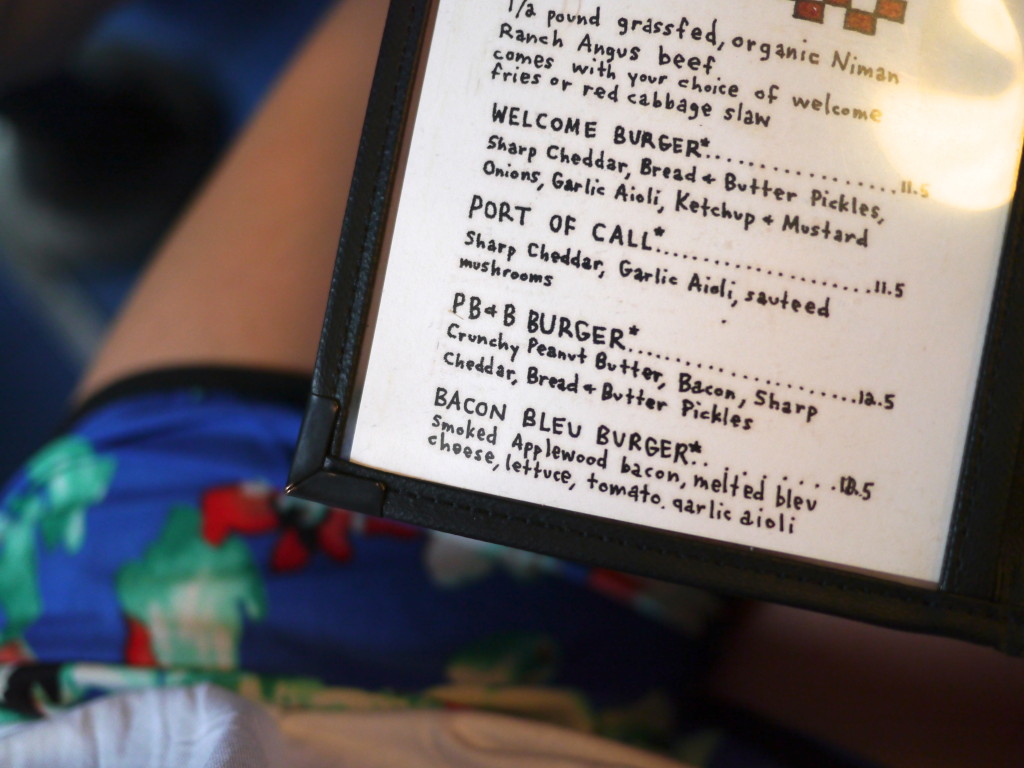 1/2 pound grassfed, organic Niman
Ranch Angus beef
comes with your choice of welcome
fries or red cabbage slaw
WELCOME BURGER*..................11.5
Sharp Cheddar, Bread & Butter Pickles,
Onions, Garlic Aioli, Ketchup & Mustard
PORT OF CALL*....................11.5
Sharp Cheddar, Garlic Aioli, sauteed
mushrooms
PB&B BURGER*.....................12.5
Crunchy Peanut Butter, Bacon, Sharp
Cheddar, Bread & Butter Pickles
BACON BLEU BURGER*...........
Smoked Applewood bacon, melted bleu
cheese, lettuce, tomato, garlic aioli